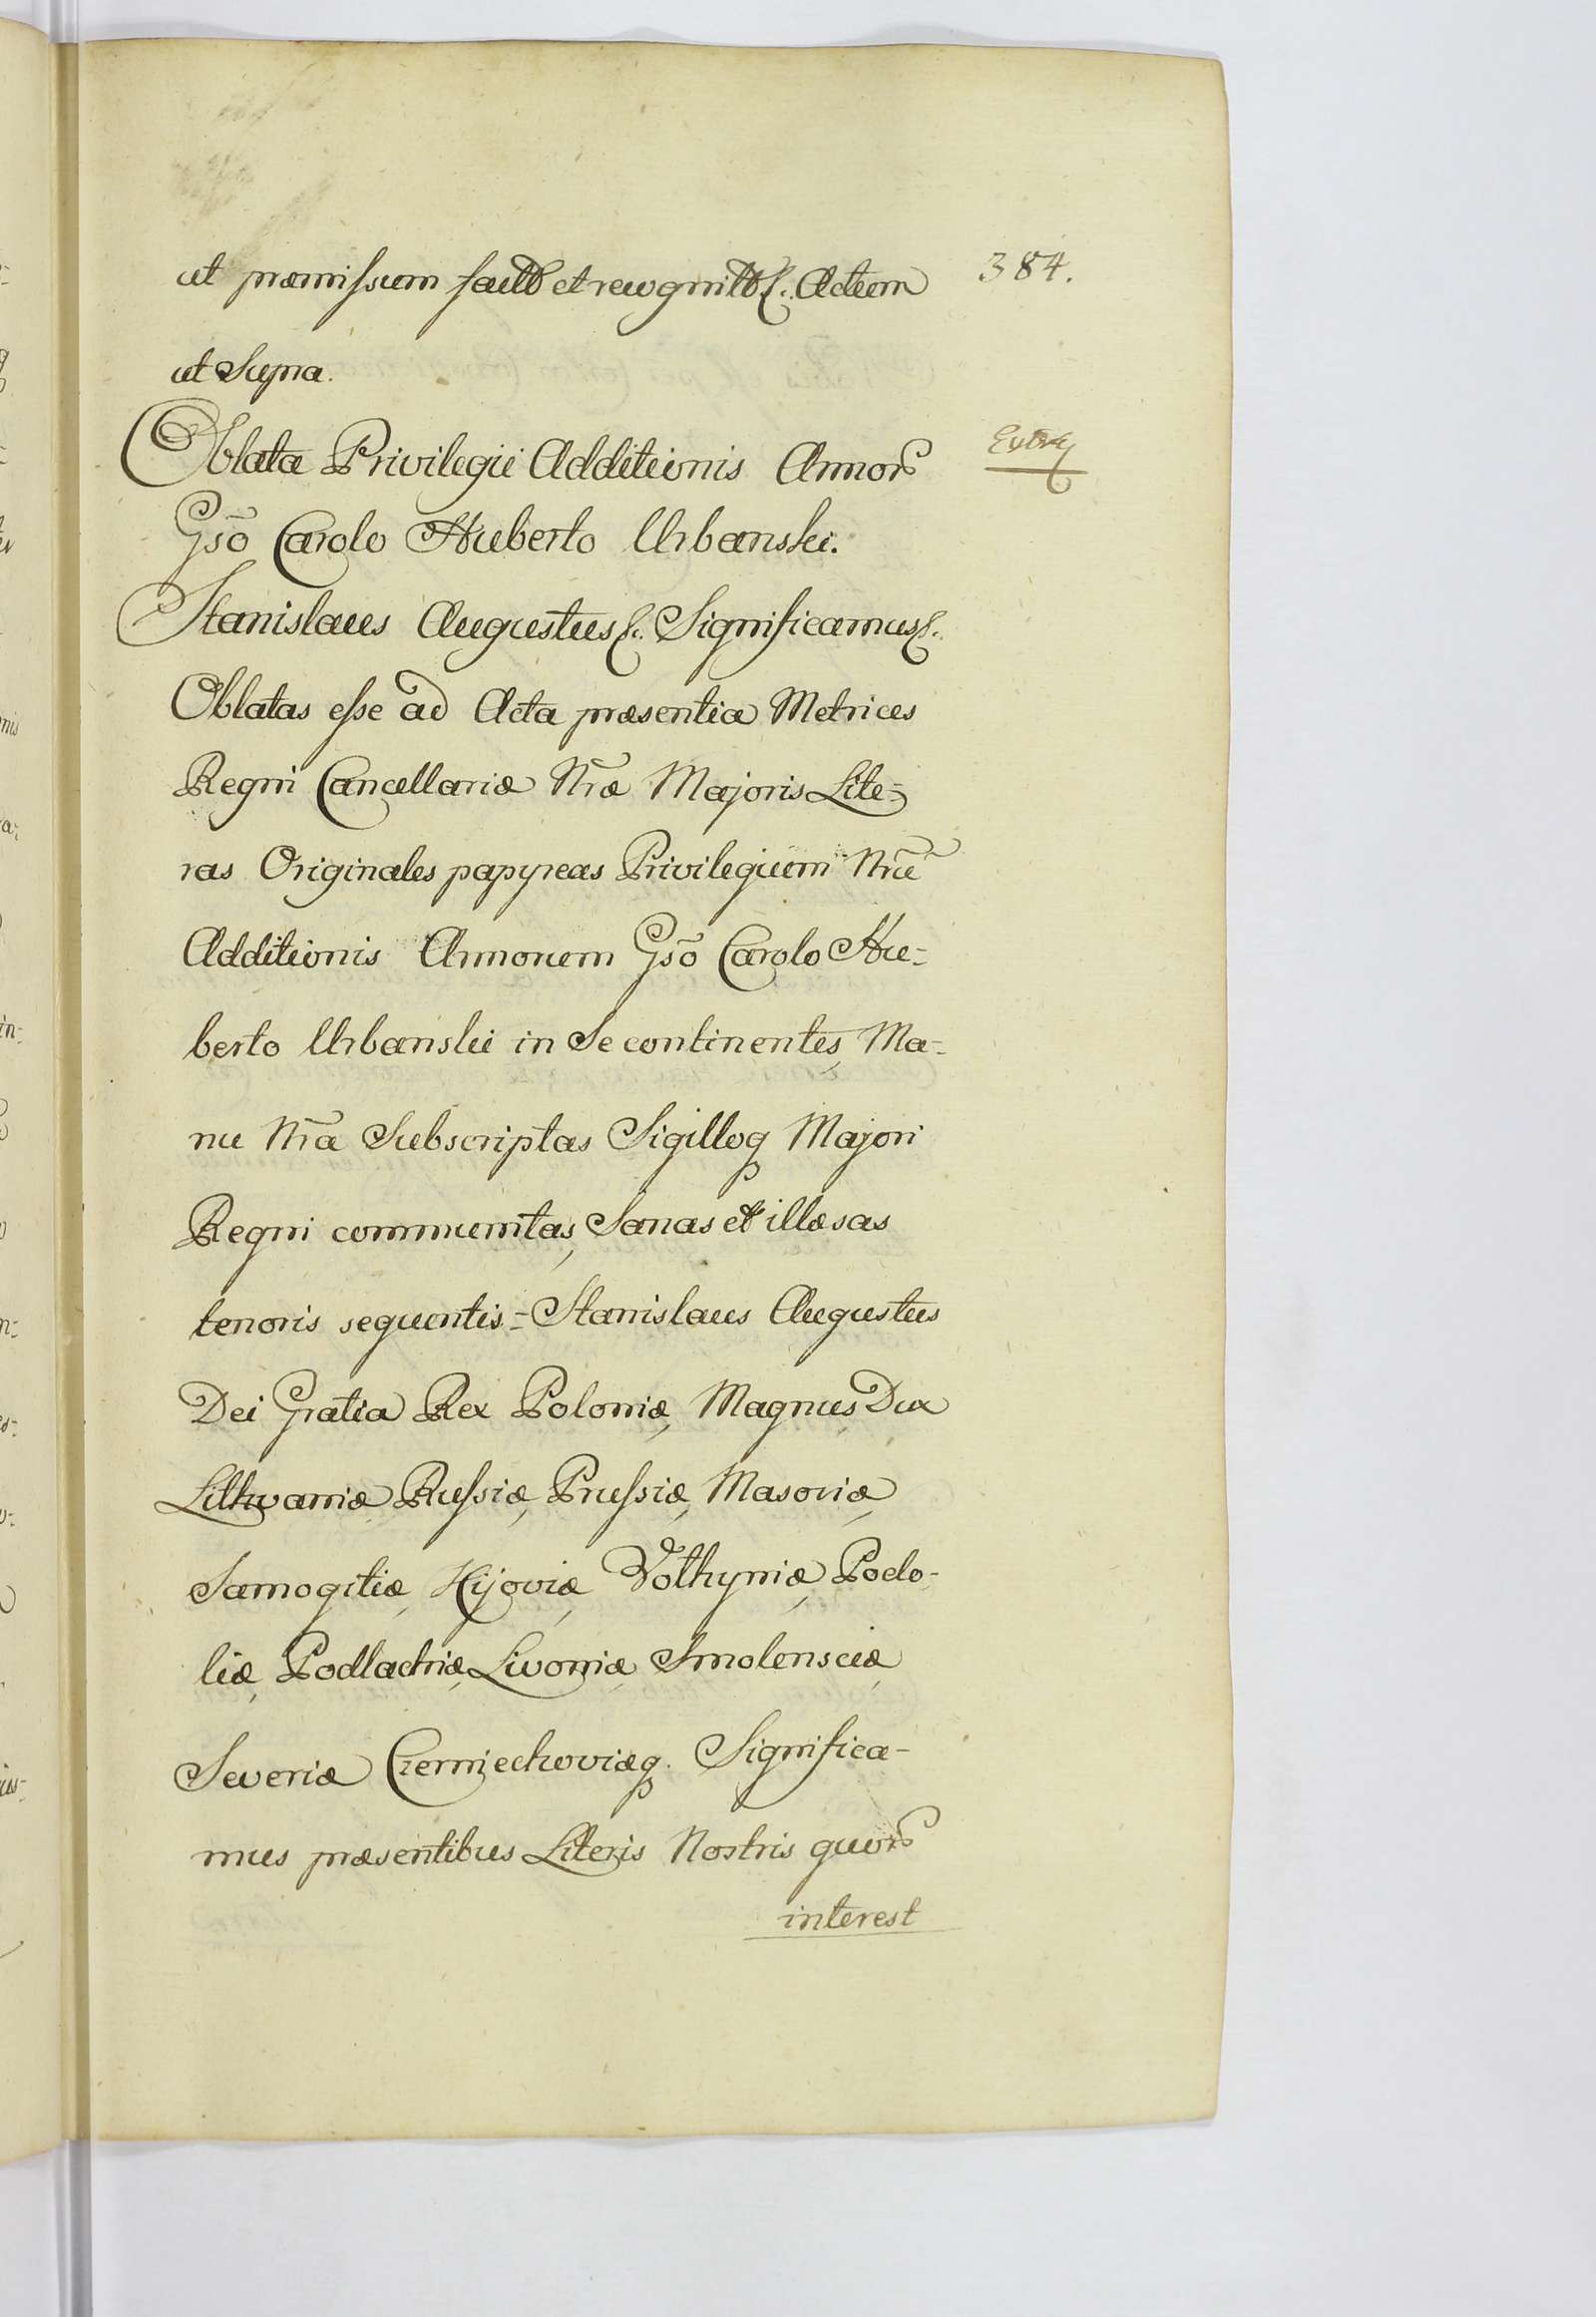 ut præmissum et &c. Actum
384.
ut Supra.
Oblata Privilegii Additionis Annor̃
Extr
Gsõ Carolo Huberto Urbanski.
Stanislaus Augustus &c. Significamus &c.
Oblatas esse ad Acta præsentia Metrices
Regni Cancellariæ Nr̃æ Majoris Lite=
ras Originales papyreas Privilegium Nrũ
Additionis Annorum Gsõ Carolo Hu=
berto Urbanski in Se continentes, Ma=
nu Nr̃a Subscriptas Sigilloq Majori
Regni communitas, Sanas et illæsas
tenoris sequentis = Stanislaus Augustus
Dei Gratia Rex Poloniæ, Magnus Dux
Lithvaniæ Russiæ, Prussiæ, Masoviæ,
Samogitiæ, Kijoviæ, Volhyniæ, Podo-
liæ, Podlachiæ, Livoniæ, Smolensciæ,
Severiæ Czerniechoviæq. Significa-
mus præsentibus Literis Nostris quor̃
interest